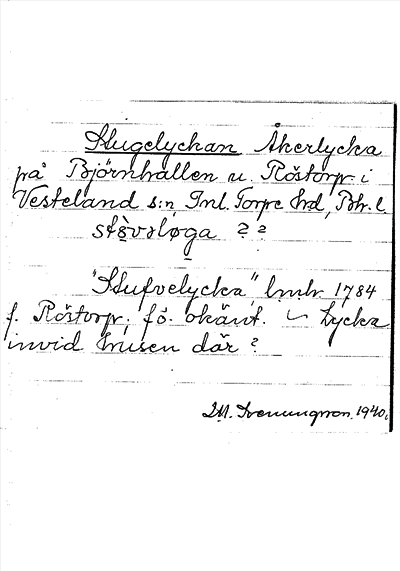 Stugelyckan Åkerlycka
på Björnhällen u. Röstorp i
Vesteland s:n, Inl. Torpe hrd, Bh. l.
støvsløga ? ?
"Stufvelycka" lmh 1784
f. Röstorp, fö. okänt. ~ Lycka
invid husen där ?
M. Svenungsson 1940.